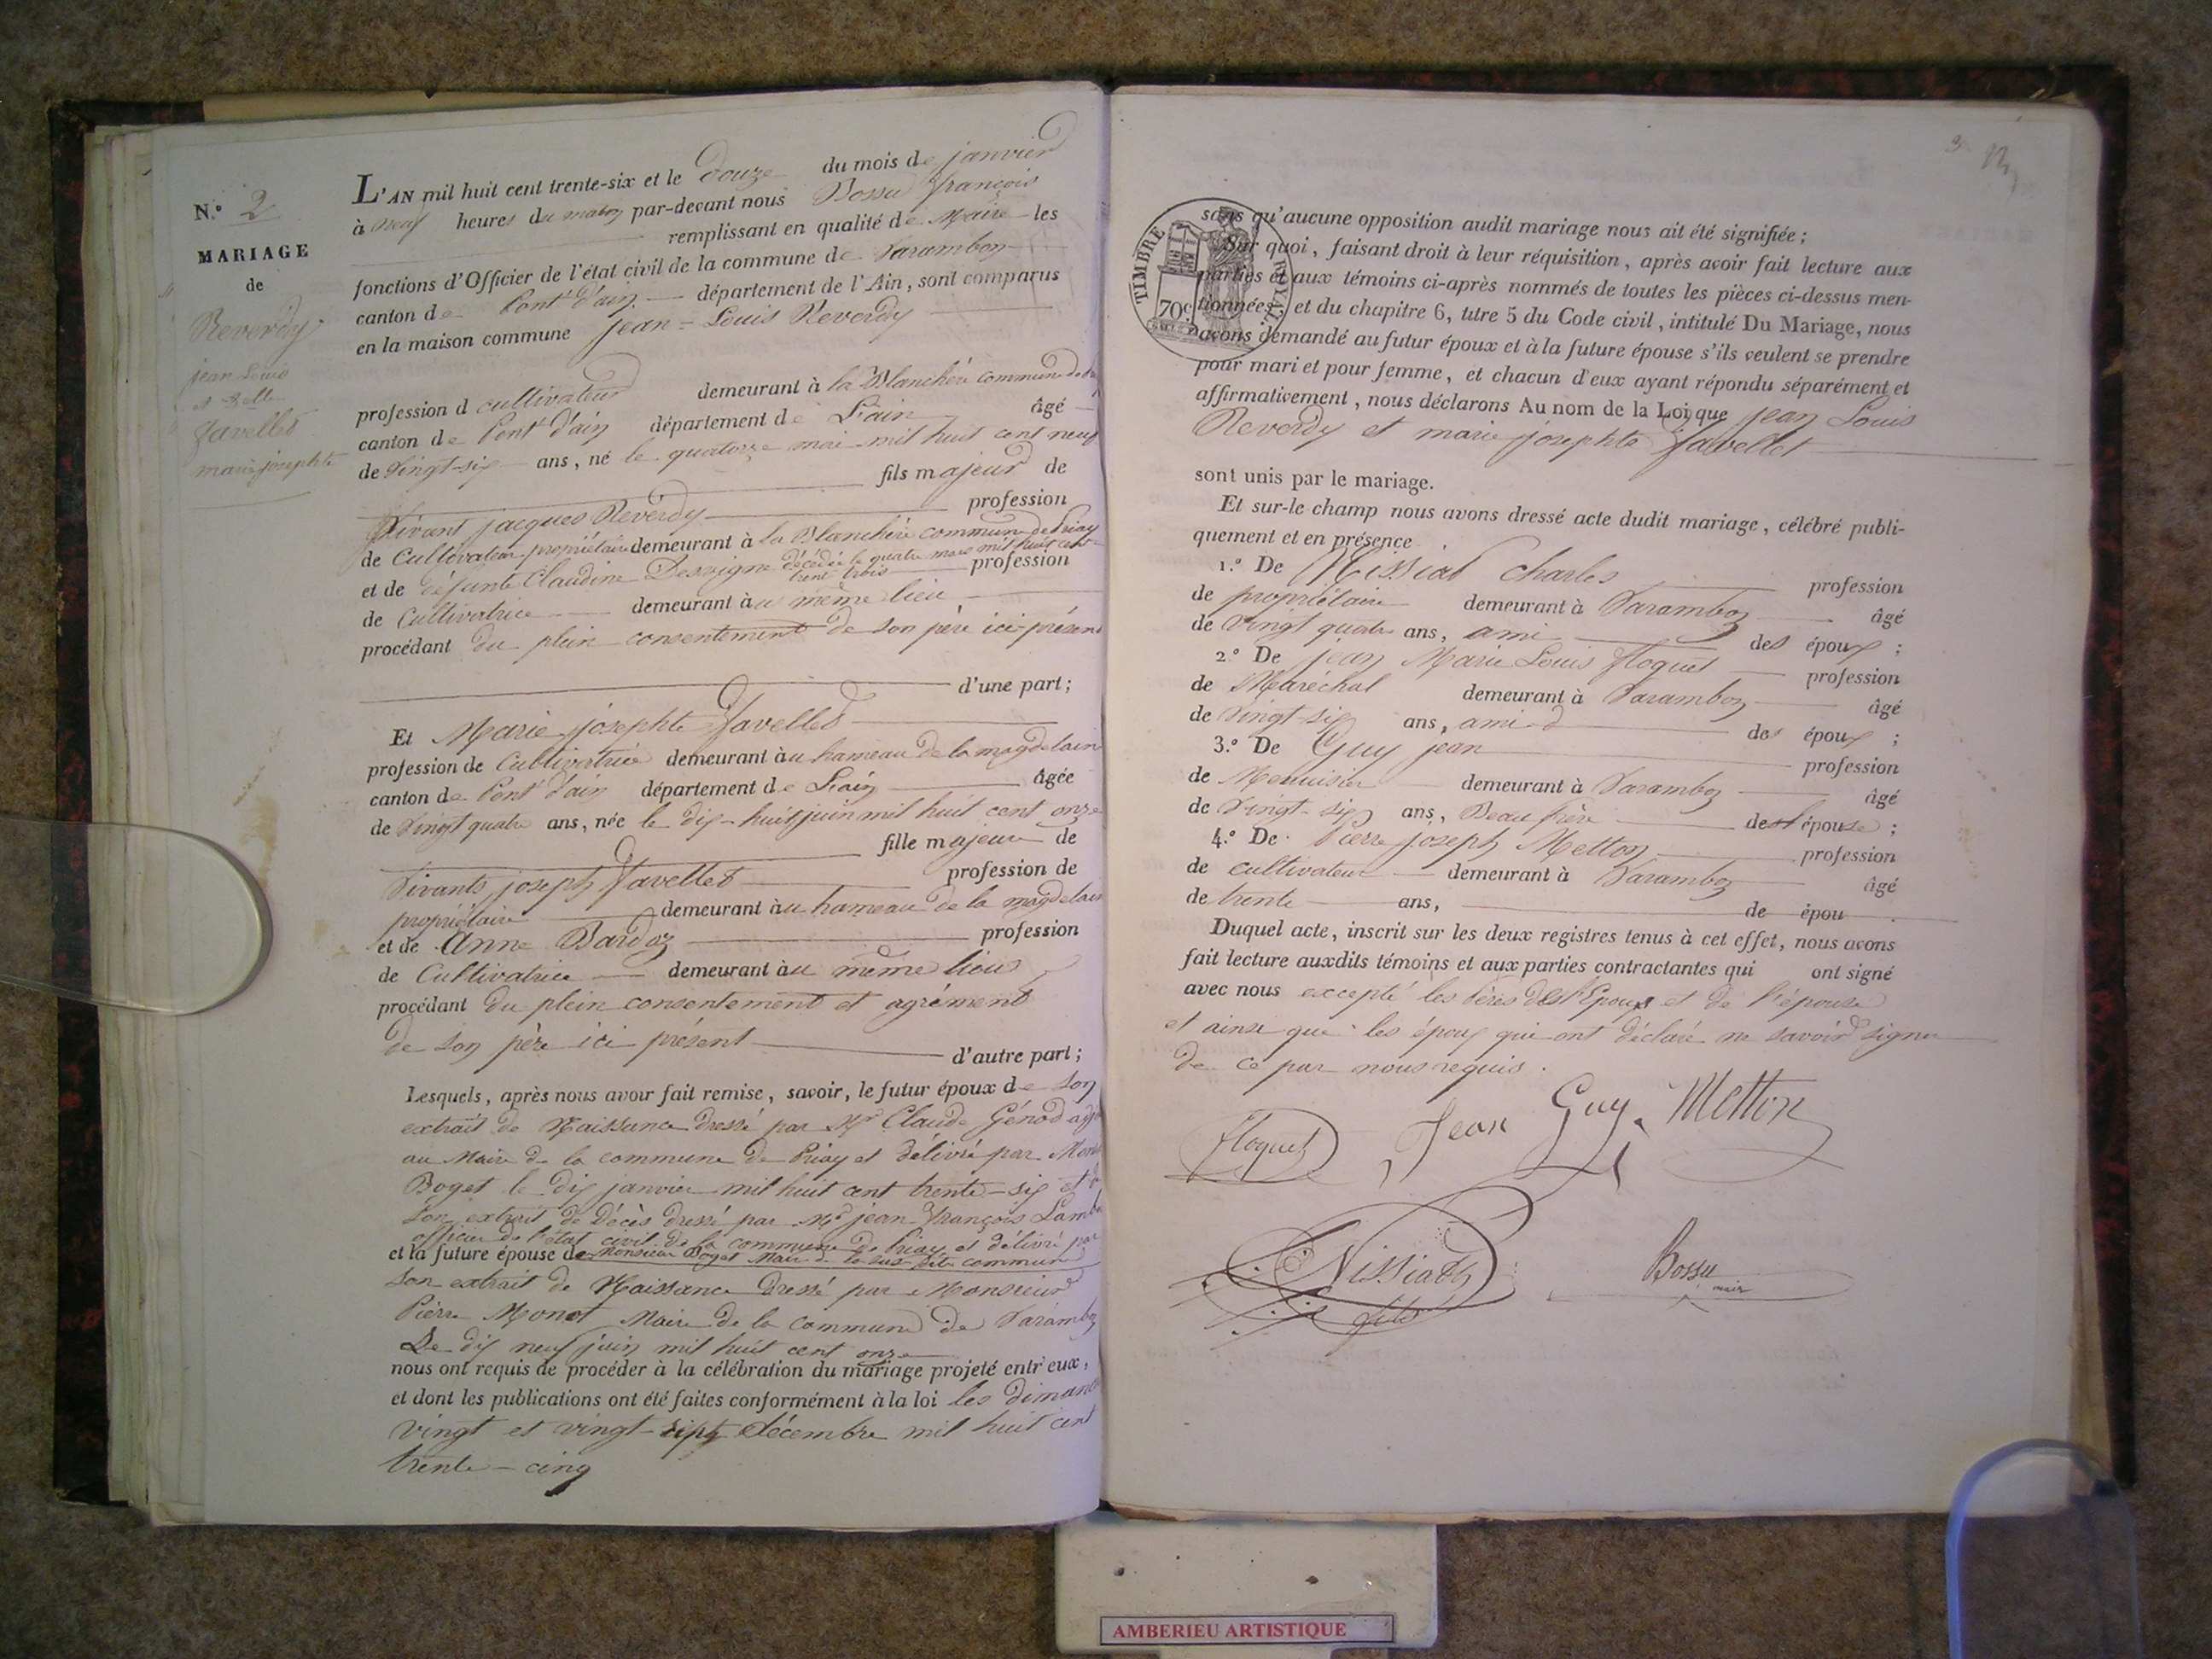 N.º 2
MARIAGE
de
Reverdy
jean Louis
et Delle
Favellet
marie josephte
L'AN mil huit cent trente-six et le douze du mois de janvier
à neuf heures du matin par-devant nous Bossu françois
remplissant en qualité de Maire les
fonctions d'Officier de l'état civil de la commune de Varambon
canton de Pont d'ain département de l'Ain, sont comparus
en la maison commune jean-Louis Reverdy
profession d cultivateur demeurant à la Blanchère commune de
canton de Pont d'ain département de L'ain âgé
de Vingt-six ans, né le quatorze mai mil huit cent neuf
fils majeur de
Vivant jacques Reverdy profession
de Cultivateur propriétaire demeurant à la Blanchère commune de Priay
et de défunte Claudine Desvigne décédée le quatre mars mil huit cent profession
trent trois
de Cultivatrice demeurant au même lieu
procédant du plein consentement de son père ici présent
d'une part;
Et Marie josephte Favellet
profession de Cultivatrice demeurant au hameau de la magdelaine
canton de Pont d'ain département de L'ain âgée
de Vingt quatre ans, née le dix-huit juin mil huit cent onze
fille majeure de
Vivants joseph Favellet profession de
propriétaire demeurant au hameau de la magdelain
et de Anne Bardoz profession
de Cultivatrice demeurant au même lieu
procédant du plein consentement et agrément
de son père ici présent d'autre part;
Lesquels, après nous avoir fait remise, savoir, le futur époux de son
extrait de Naissance dressé par Mr Claude Génod adj
au Maire de la commune de Priay et délivré par
Boget le dix janvier mil huit cent trente-six et
Son extrait de Décès dressé par Mr jean françois
officier de l'état civil de la commune de Priay et délivré par
et la future épouse de Monsieur Boget Maire de la sus dite commune
son extrait de Naissance Dressé par Monsieur
Pierre Monet Maire de la commune de Varambon
Le dix neuf juin mil huit cent onze
nous ont requis de procéder à la célébration du mariage projeté entr'eux,
et dont les publications ont été faites conformément à la loi les dimanc
vingt et vingt-sept décembre mil huit cent
trente-cinq
3
TIMBRE ROYAL
70c
sans qu'aucune opposition audit mariage nous ait été signifiée;
Sur quoi, faisant droit à leur réquisition, après avoir fait lecture aux
parties et aux témoins ci-après nommés de toutes les pièces ci-dessus men-
tionnées, et du chapitre 6, titre 5 du Code civil, intitulé Du Mariage, nous
avons demandé au futur époux et à la future épouse s'ils veulent se prendre
pour mari et pour femme, et chacun d'eux ayant répondu séparément et
affirmativement, nous déclarons Au nom de la Loi que jean Louis
Reverdy et marie josephte Favellet
sont unis par le mariage.
Et sur-le champ nous avons dressé acte dudit mariage, célébré publi-
quement et en présence
1.º De Missiat Charles profession
de propriétaire demeurant à Varambon âgé
de Vingt quatre ans, ami des époux;
2.º De jean Marie Louis Floquet profession
de Maréchal demeurant à Varambon âgé
de Vingt-six ans, ami des époux;
3.º De Guy jean profession
de Menuisier demeurant à Varambon âgé
de Vingt-six ans, Beau frère de l'épouse;
4.º De Pierre joseph Metton profession
de cultivateur demeurant à Varambon âgé
de trente ans, de épou .
Duquel acte, inscrit sur les deux registres tenus à cet effet, nous avons
fait lecture auxdits témoins et aux parties contractantes qui ont signé
avec nous excepté les pères de l'Epoux et de l'épouse
et ainsi que les époux qui ont déclaré ne savoir signer
de ce par nous requis.
Floquet Jean Guy. Metton
Bossu
maire
fils
AMBERIEU ARTISTIQUE